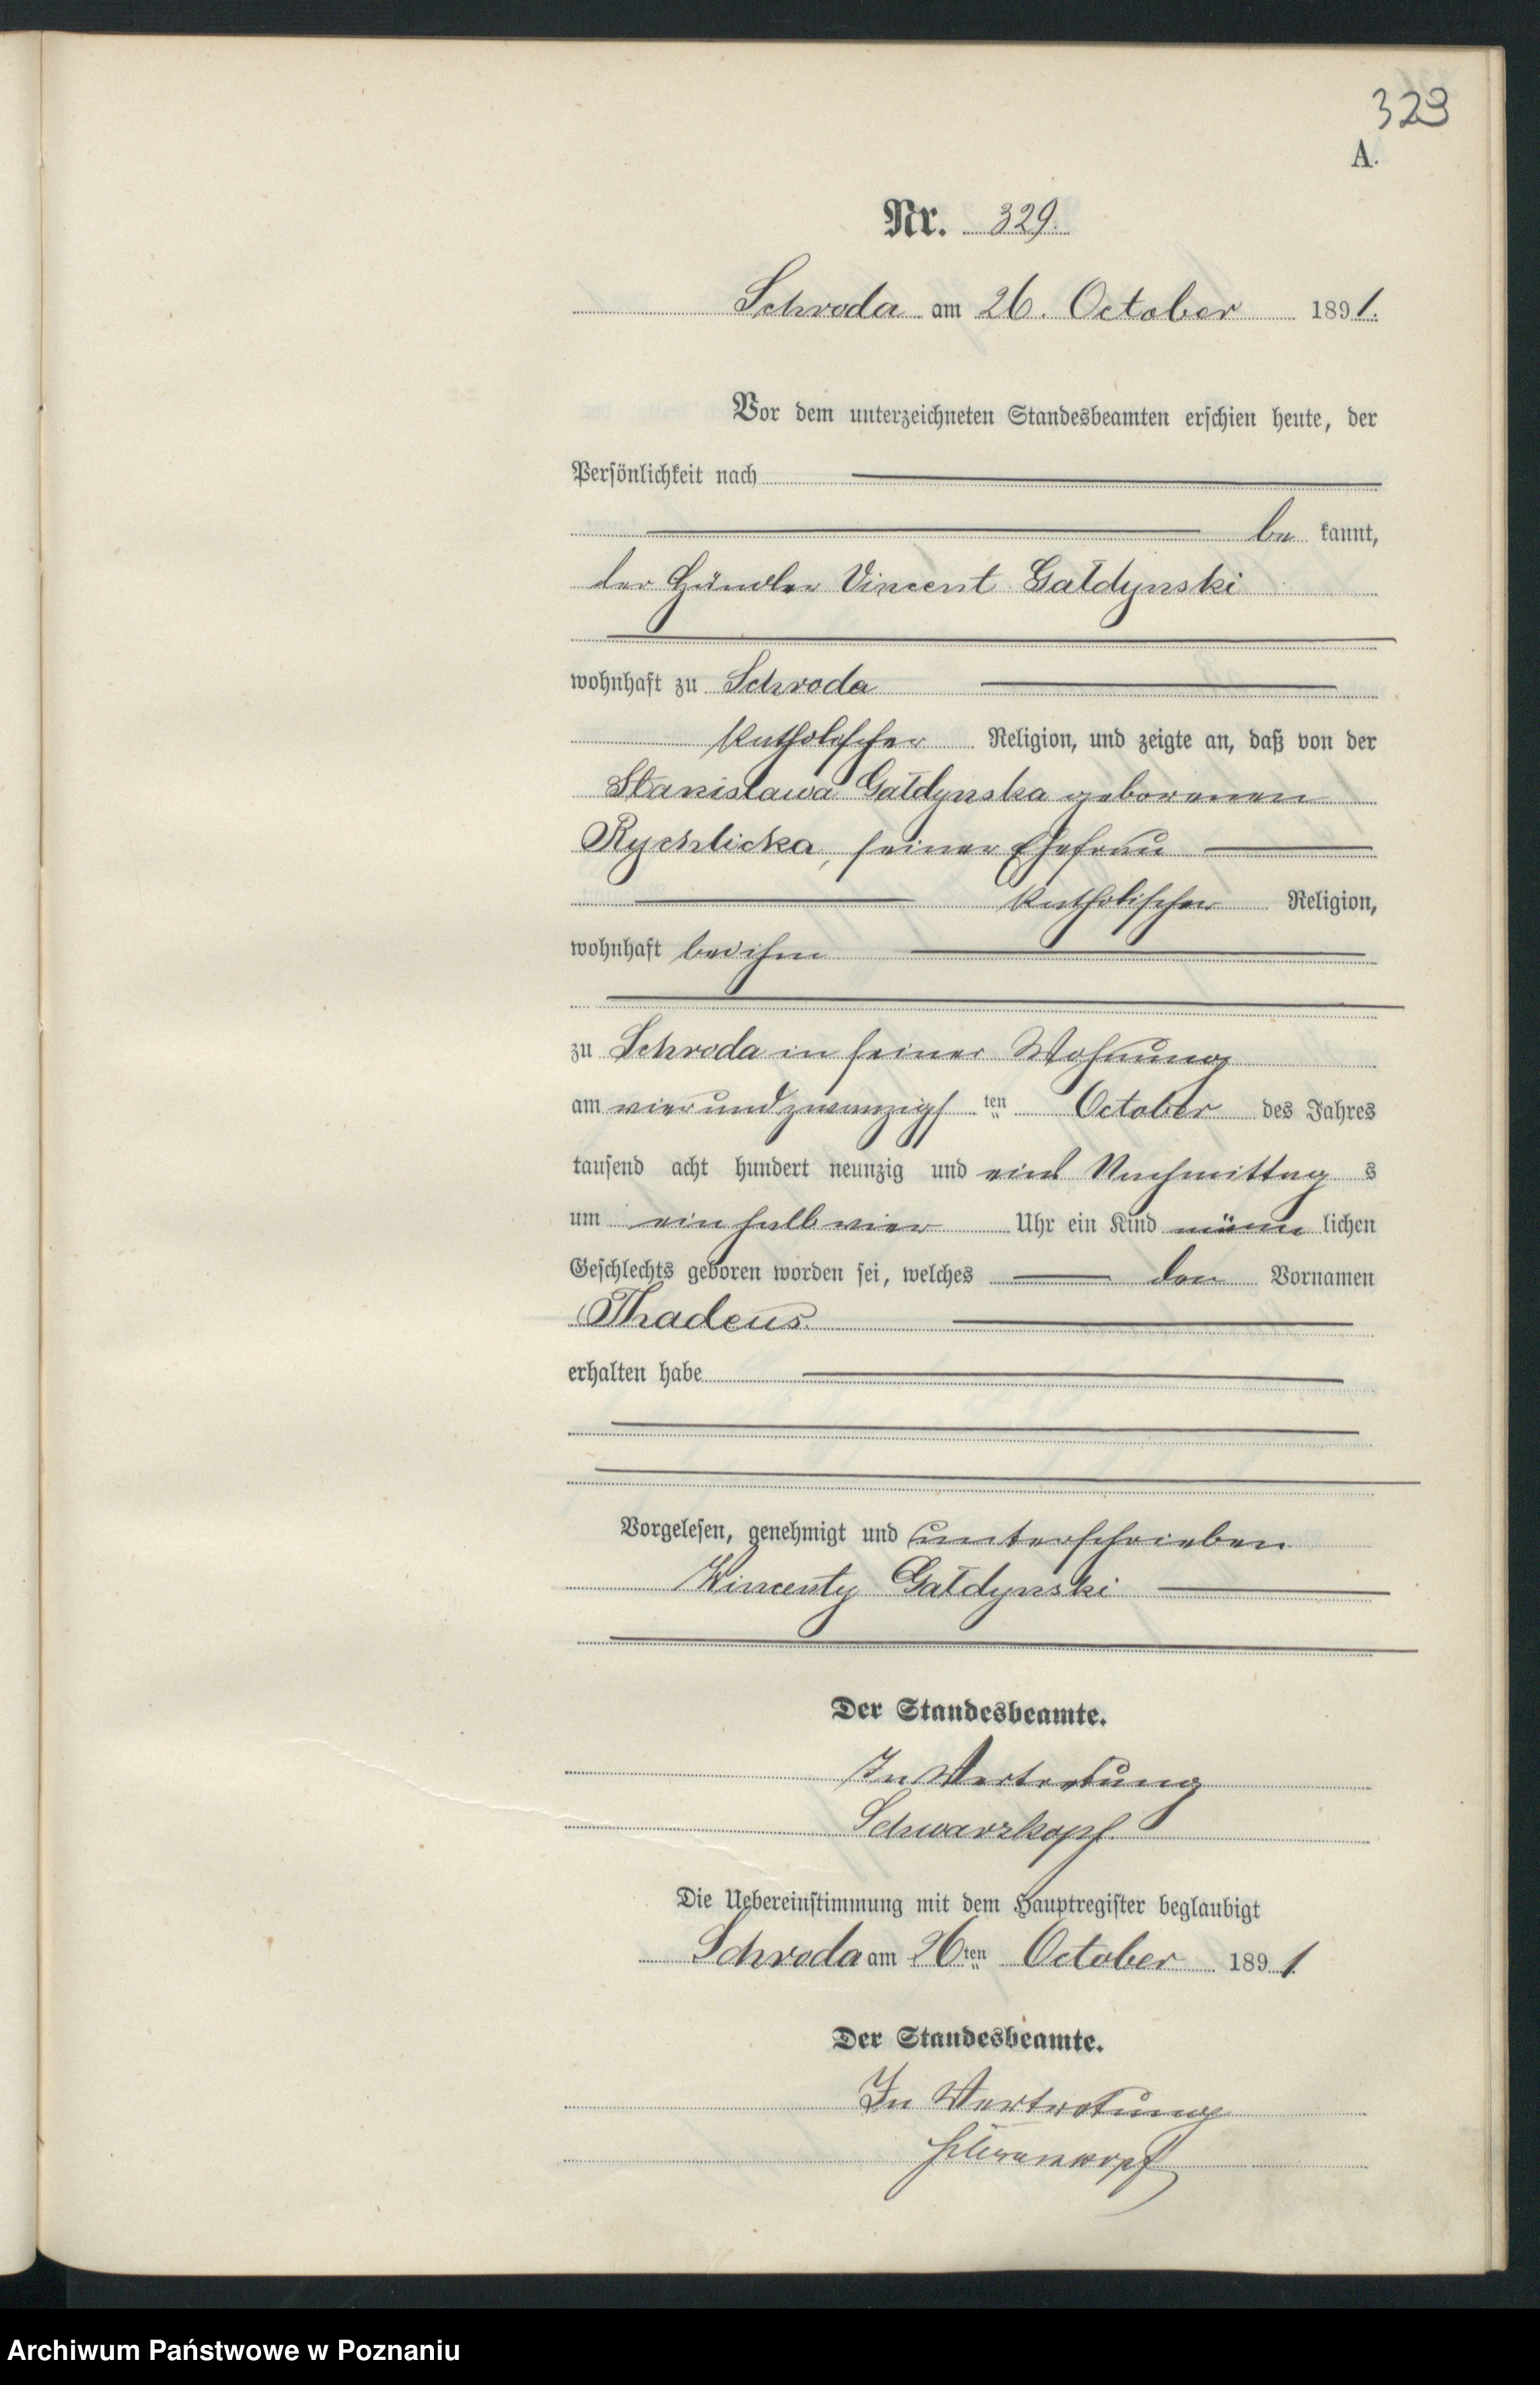 329
A.
Nr. 329.
Schroda am 26. October 1891.
Vor dem unterzeichneten Standesbeamten erschien heute, der
Persönlichkeit nach
be kannt,
der Händler Vincent Gałdynski
wohnhaft zu Schroda
katholischer Religion, und zeigte an, daß von der
Stanisława Gałdynska geborenen
Rychlicka, seiner Ehefrau
katholischer Religion,
wohnhaft bei ihm
zu Schroda in seiner Wohnung
am vierundzwanzigsten October des Jahres
tausend acht hundert neunzig und eins Nachmittag s
um ein halb vier Uhr ein Kind männ lichen
Geschlechts geboren worden sei, welches den Vornamen
Thadeus
erhalten habe
Vorgelesen, genehmigt und unterschrieben
Wincenty Gałdynski
Der Standesbeamte.
In Vertretung
Schwarzkopf.
Die Uebereinstimmung mit dem Hauptregister beglaubigt
Schroda am 26ten October 1891
Der Standesbeamte.
In Vertretung
Schwarzkopf
Archiwum Państwowe w Poznaniu